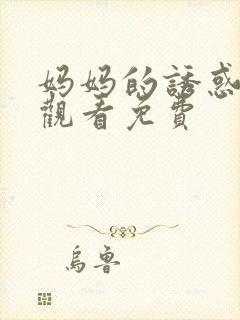 妈妈的誘惑
觀看免費
烏魯